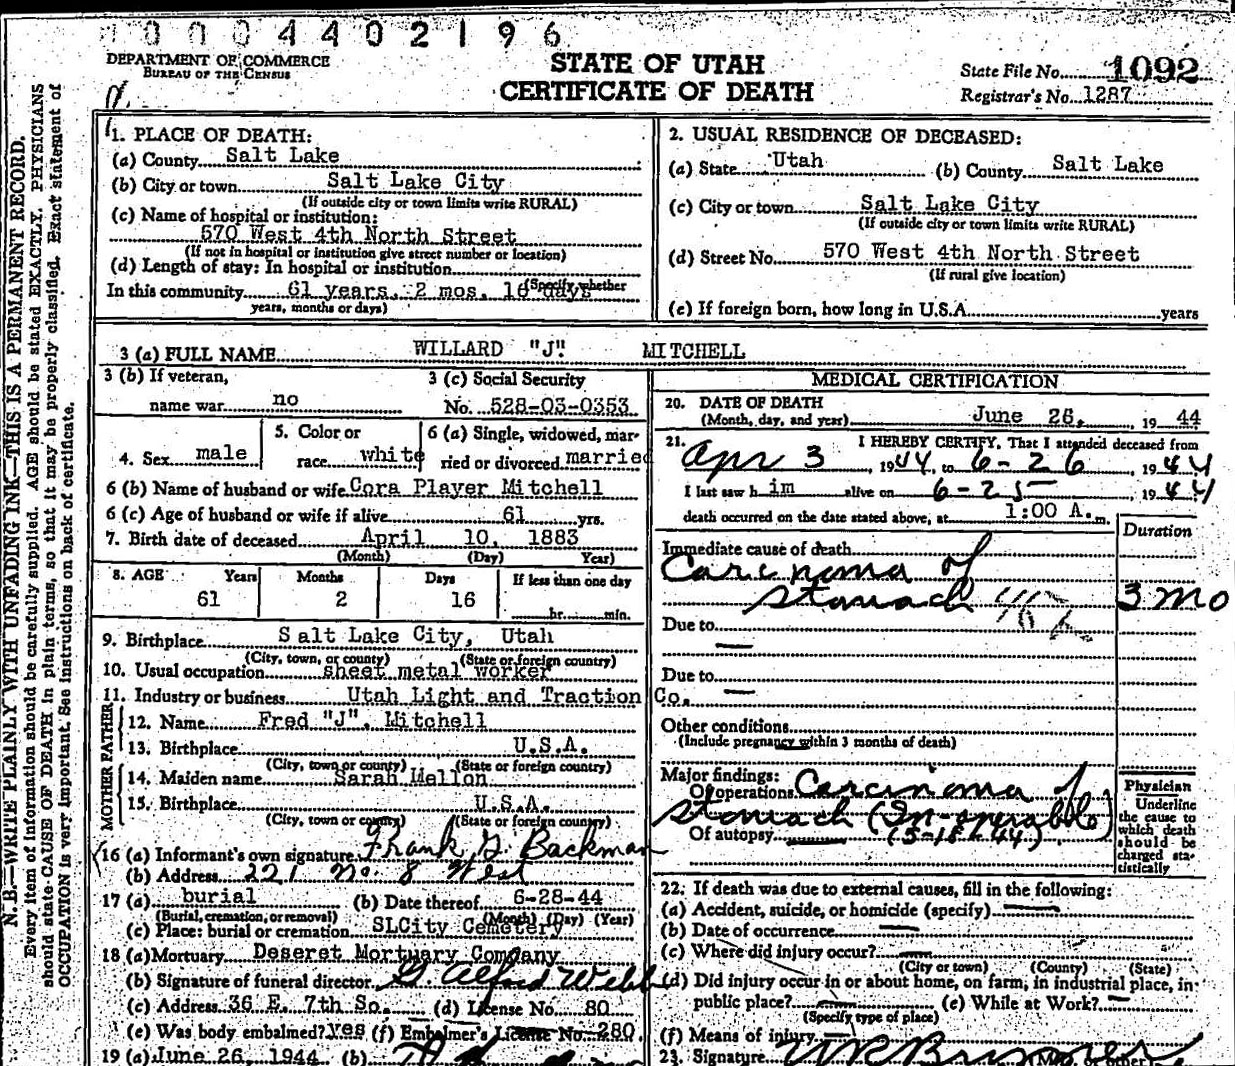 0004402196
DEPARTMENT OF COMMERCE
BUREAU OF THE CENSUS
STATE OF UTAH
CERTIFICATE OF DEATH
State File No. 1092
Registrar's No. 1287
N. B.—WRITE PLAINLY WITH UNFADING INK—THIS IS A PERMANENT RECORD.
Every item of information should be carefully supplied. AGE should be stated EXACTLY. PHYSICIANS
should state CAUSE OF DEATH in plain terms, so that it may be properly classified. Exact statement of
OCCUPATION is very important. See instructions on back of certificate.
1. PLACE OF DEATH:
(a) County Salt Lake
(b) City or town Salt Lake City
(If outside city or town limits write RURAL)
(c) Name of hospital or institution:
570 West 4th North Street
(If not in hospital or institution give street number or location)
(d) Length of stay: In hospital or institution
(Specify whether
In this community 61 years, 2 mos. 16 days
years, months or days)
2. USUAL RESIDENCE OF DECEASED:
(a) State Utah (b) County Salt Lake
(c) City or town Salt Lake City
(If outside city or town limits write RURAL)
(d) Street No. 570 West 4th North Street
(If rural give location)
(e) If foreign born, how long in U.S.A. years
3 (a) FULL NAME WILLARD "J" MITCHELL
3 (b) If veteran,
name war no
3 (c) Social Security
No. 528-03-0353
4. Sex male
5. Color or
race white
6 (a) Single, widowed, mar-
ried or divorced married
6 (b) Name of husband or wife Cora Player Mitchell
6 (c) Age of husband or wife if alive 61 yrs.
7. Birth date of deceased April 10, 1883
(Month) (Day) Year)
8. AGE Years Months Days If less than one day
61 2 16 hr. min.
9. Birthplace Salt Lake City, Utah
(City, town, or county) (State or foreign country)
10. Usual occupation sheet metal worker
11. Industry or business Utah Light and Traction Co.
FATHER
12. Name Fred "J". Mitchell
13. Birthplace U.S.A.
(City, town or county) (State or foreign country)
MOTHER
14. Maiden name Sarah Mellon
15. Birthplace U.S.A.
(City, town or county) (State or foreign country)
16 (a) Informant's own signature Frank G. Backman
(b) Address 221 No. 8 West
17 (a) burial (b) Date thereof 6-28-44
(Burial, cremation, or removal) (Month) (Day) (Year)
(c) Place: burial or cremation SLCity Cemetery
18 (a) Mortuary Deseret Mortuary Company
(b) Signature of funeral director G. Alford Webb
(c) Address 36 E. 7th So. (d) License No. 80
(e) Was body embalmed? yes (f) Embalmer's License No. 280
19 (a) June 26, 1944 (b)
MEDICAL CERTIFICATION
20. DATE OF DEATH
(Month, day, and year) June 26, 19 44
21. I HEREBY CERTIFY, That I attended deceased from
Apr 3, 1944, to 6-26, 1944
I last saw h im alive on 6-25, 1944
death occurred on the date stated above, at 1:00 A. m.
Duration
Immediate cause of death
Carcinoma of
stomach 3 mo
Due to —
Due to —
Other conditions
(Include pregnancy within 3 months of death)
Major findings:
Of operations Carcinoma of
stomach (In-operable)
Of autopsy (5-18-44)
Physician
Underline
the cause to
which death
should be
charged sta-
tistically
22. If death was due to external causes, fill in the following:
(a) Accident, suicide, or homicide (specify) —
(b) Date of occurrence —
(c) Where did injury occur? —
(City or town) (County) (State)
(d) Did injury occur in or about home, on farm, in industrial place, in
public place? — (e) While at Work? —
(Specify type of place)
(f) Means of injury —
23. Signature (M.D. or other)